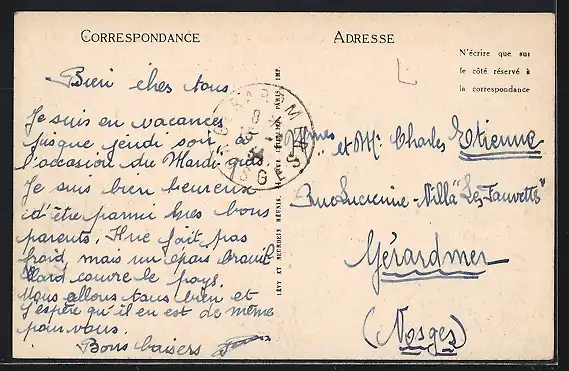 CORRESPONDANCE
Bien chers tous
Je suis en vacances
jusque jeudi soir à
l'occasion du Mardi-gras.
Je suis bien heureux
d'être parmi mes bons
parents. Il ne fait pas
froid, mais un épais brouil
lard couvre le pays.
Nous allons tous bien et
j'espère qu'il en est de même
pour vous.
Bons baisers
LÉVY ET NEURDEIN RÉUNIS, PARIS, IMP.
ADRESSE
N'écrire que sur
le côté réservé à
la correspondance
Mmes et Mr Charles Etienne
Rue Lucienne - Villa "Les Fauvettes"
Gérardmer
(Vosges)